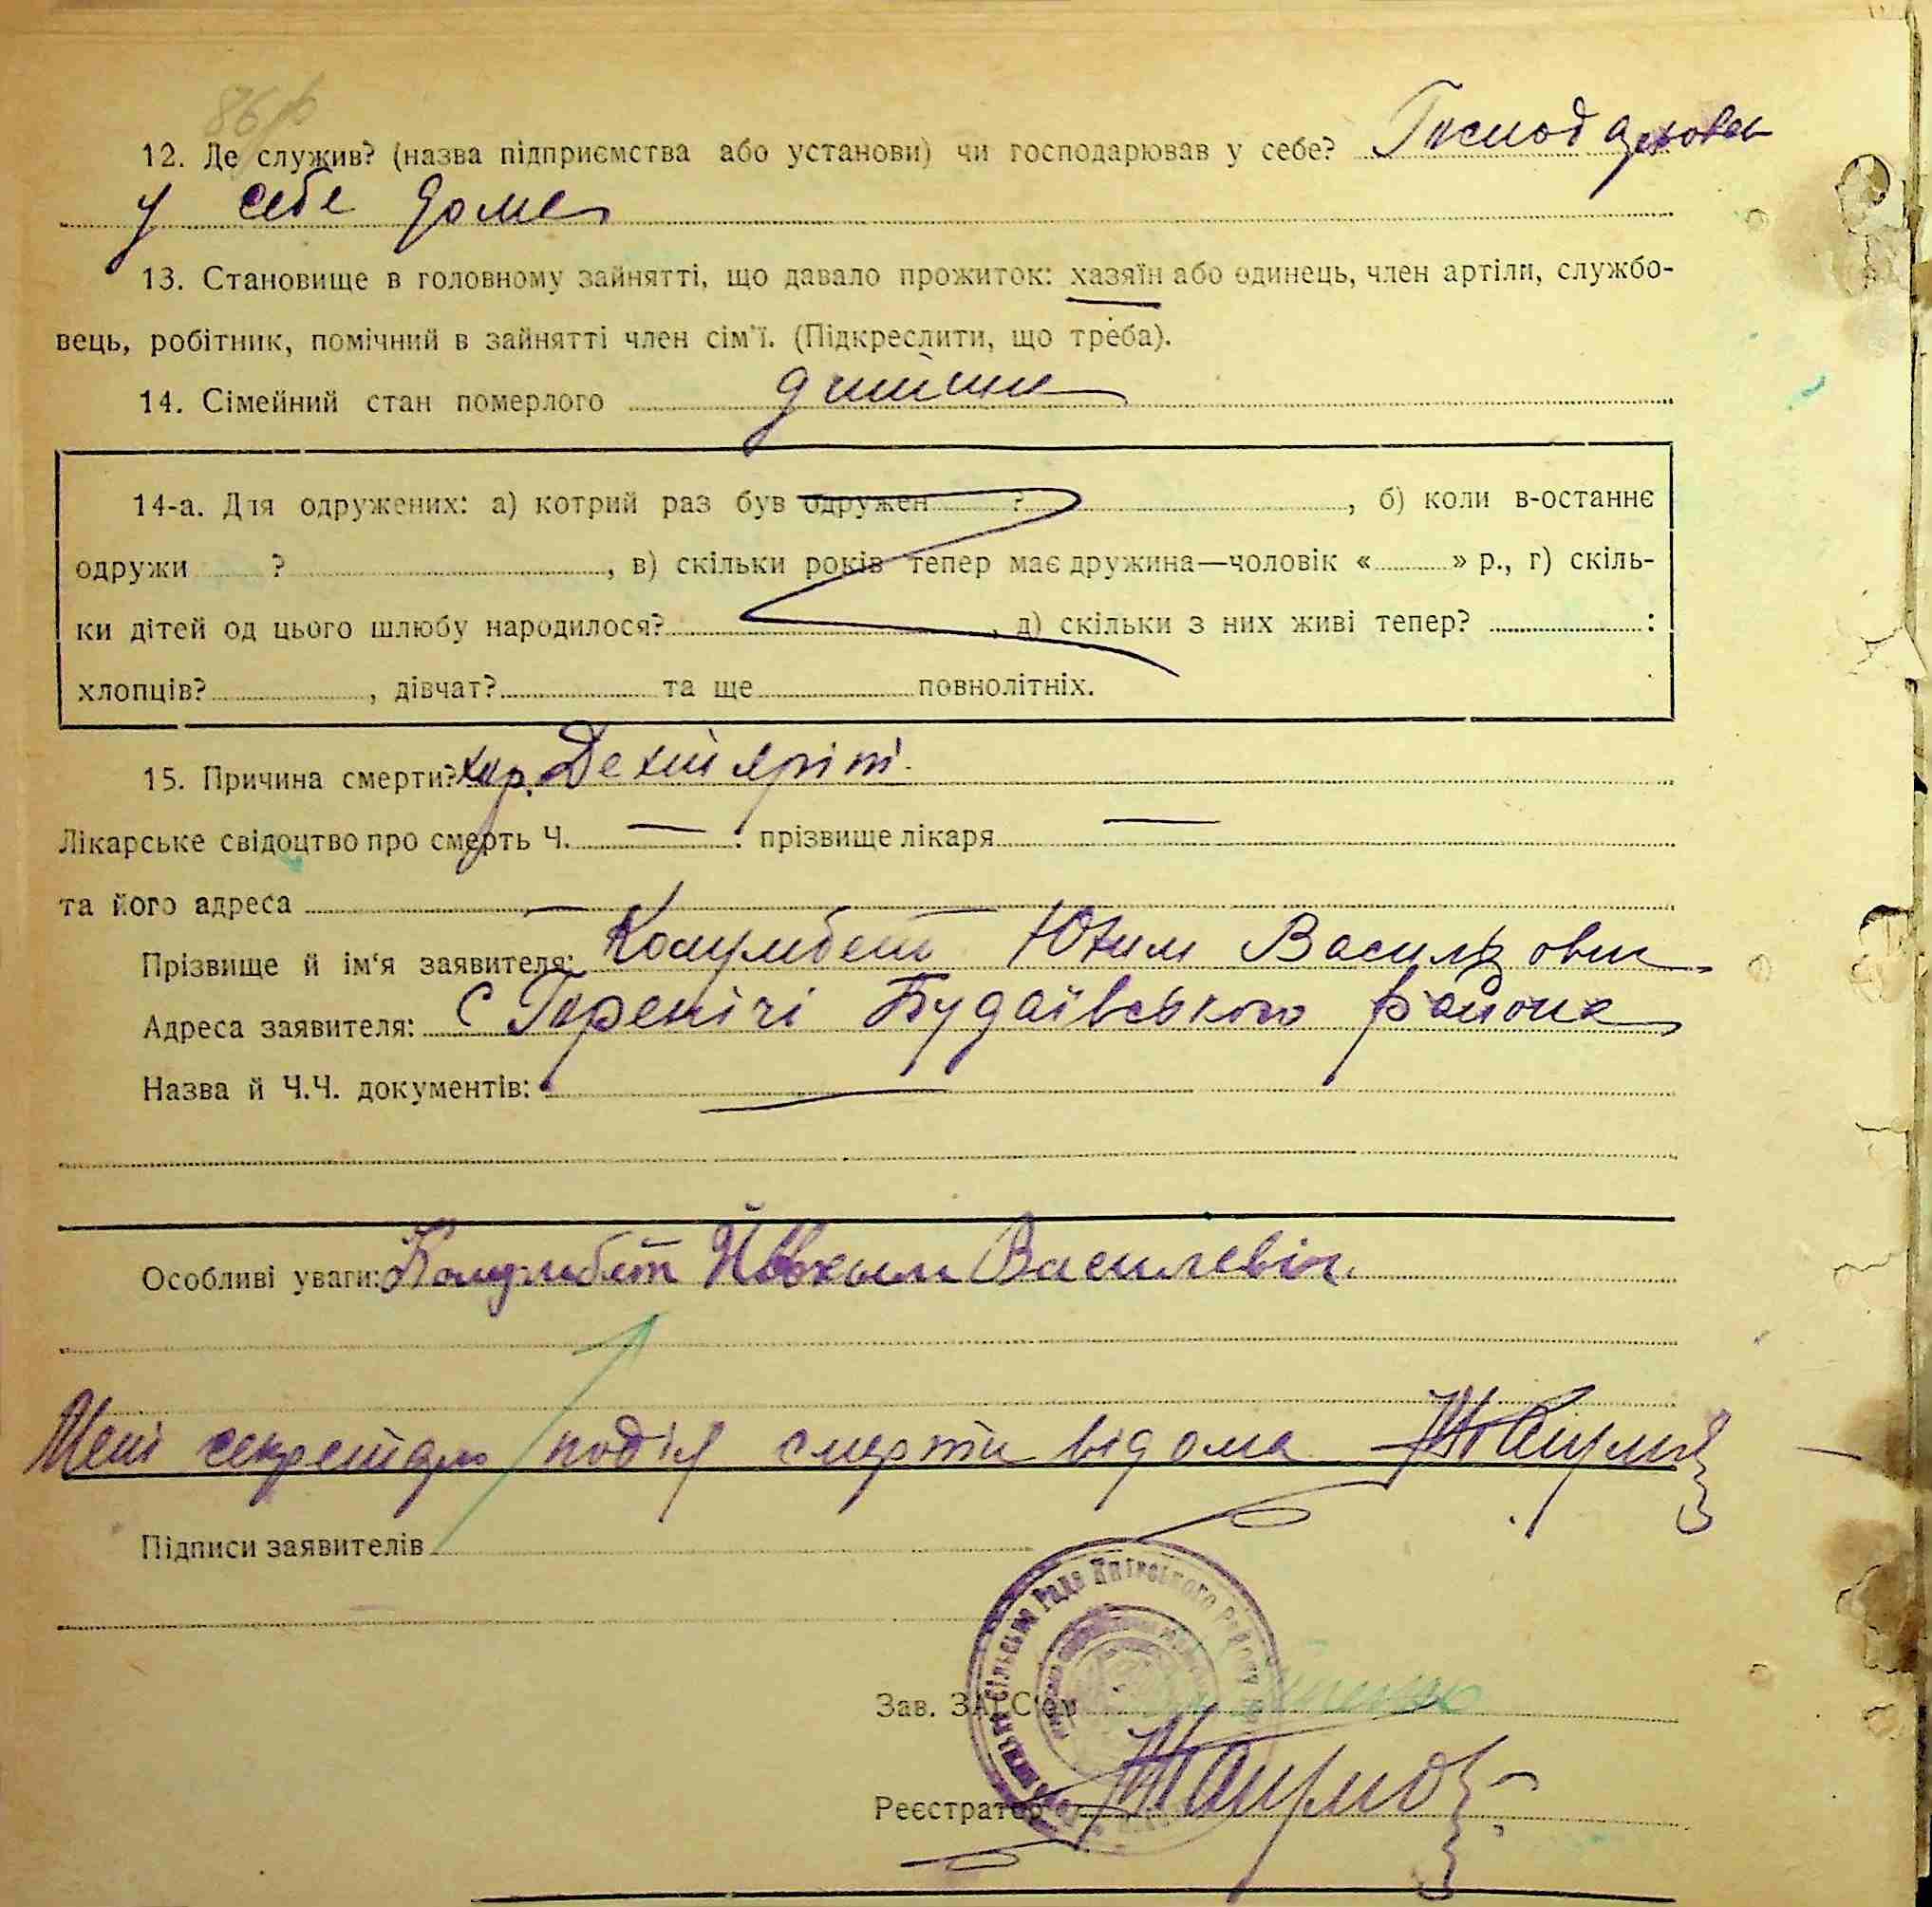 86
12. Де служив? (назва підприємства або установи) чи господарював у себе? Господарював
у себе дома
13. Становище в головному зайнятті, що давало прожиток: хазяїн або одинець, член артіли, службо-
вець, робітник, помічний в зайнятті член сім'ї. (Підкреслити, що треба).
14. Сімейний стан померлого
14-а. Для одружених: а) котрий раз був одружен ? , б) коли в-останнє
одружи ? , в) скільки років тепер має дружина—чоловік « » р., г) скіль-
ки дітей од цього шлюбу народилося? , д) скільки з них живі тепер? :
хлопців? , дівчат? та ще повнолітніх.
15. Причина смерти?
Лікарське свідоцтво про смерть Ч. — : прізвище лікаря —
та його адреса — —
Прізвище й ім'я заявителя: Юхим Васильович
Адреса заявителя: с Гореничі Будаївського району
Назва й Ч.Ч. документів: —
Особливі уваги: Василевіч
Мені секретарю подія смерти відома
Підписи заявителів
Сільська Рада Київського Району
Зав. ЗАГС'ом
Реєстратор